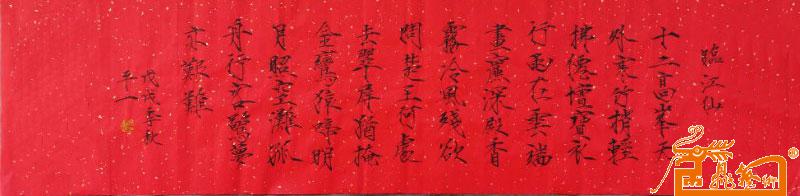 臨江仙
十二高峯天
外寒竹梢輕
拂僊壇寶衣
行雨在雲端
畫簾深殿香
霧冷風殘欲
問楚王何處
去翠屏猶掩
金鸞猿啼明
月照空灘孤
舟行客驚夢
亦艱難
戊戌季秋
平一